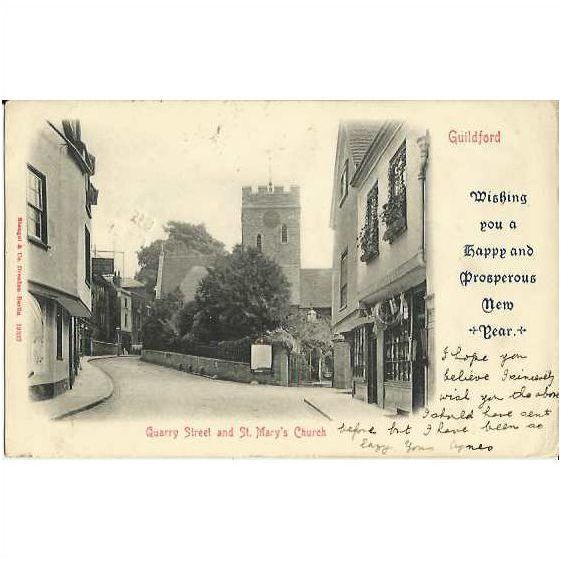 Guildford
Wishing
you a
Happy and
Prosperous
New
Year.
I hope you
believe I sincerely
wish you the above
I should have sent
before but I have been so
lazy. Yours Agnes
Quarry Street and St. Mary's Church
Stengel & Co. Dresden-Berlin